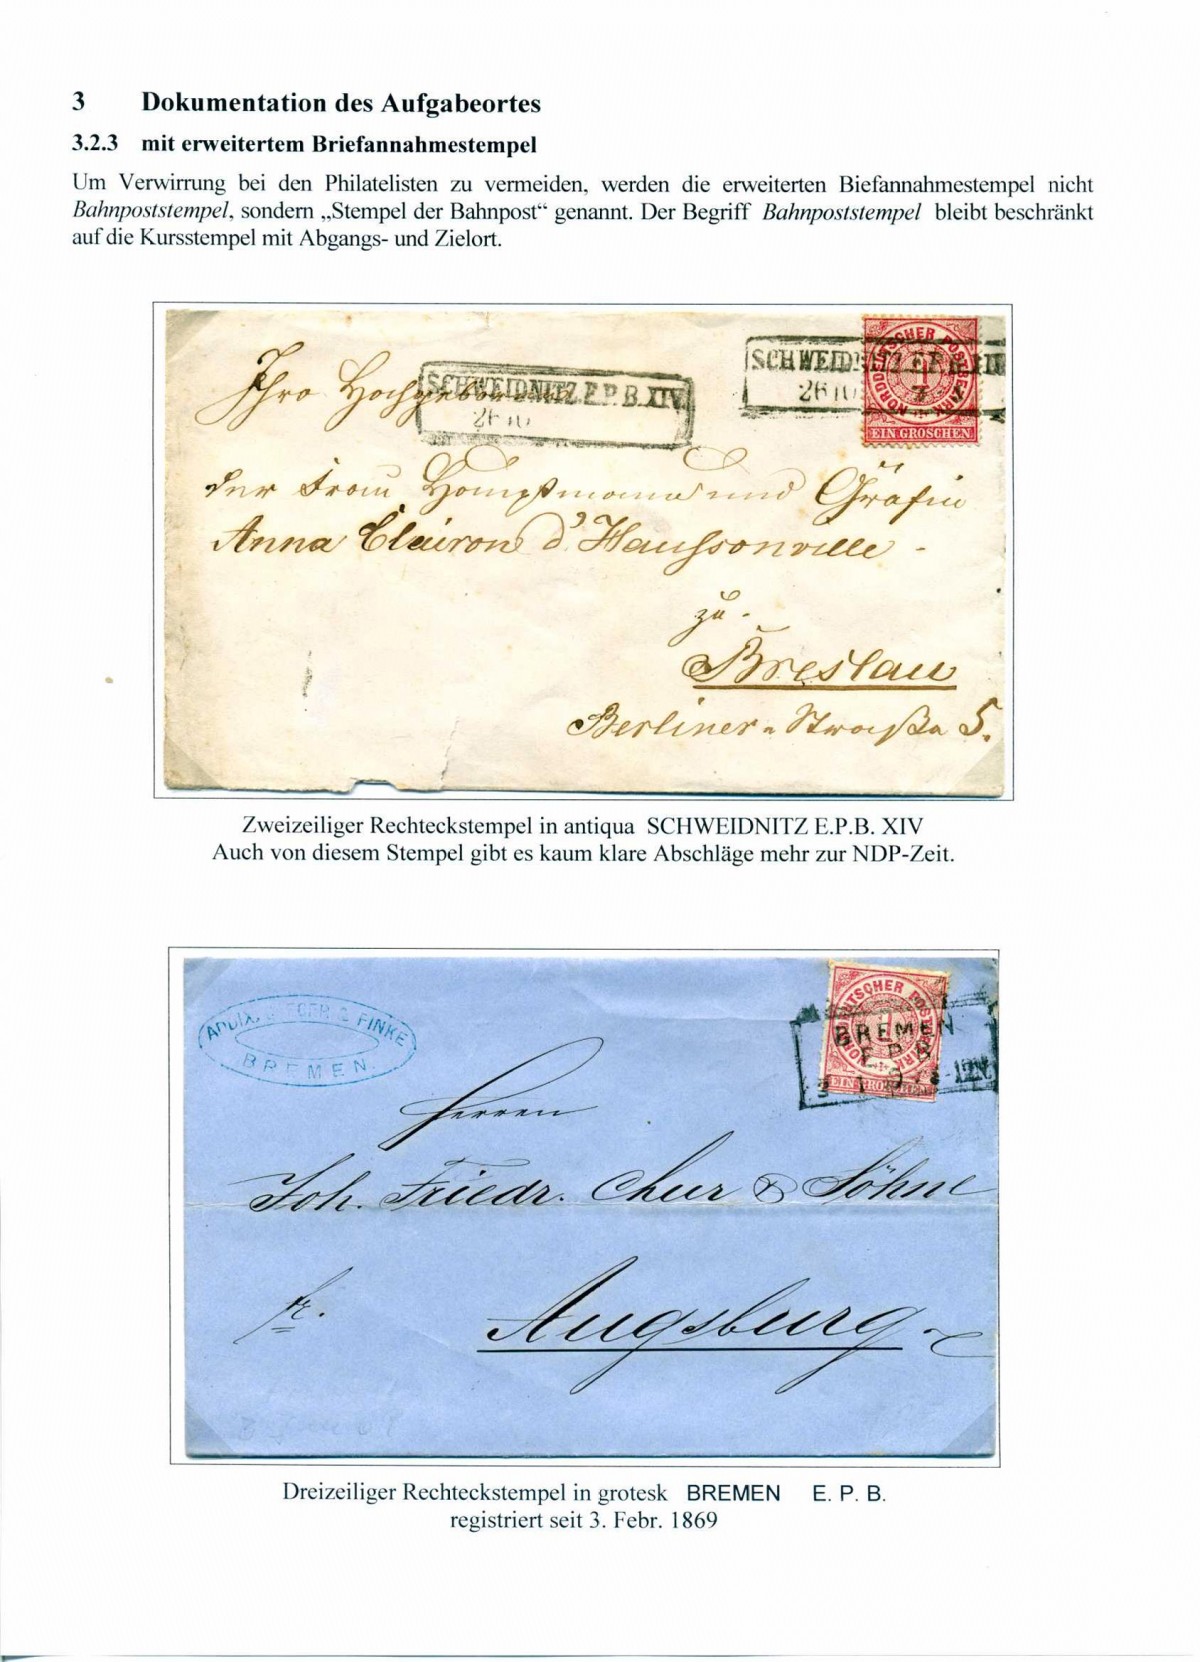 3 Dokumentation des Aufgabeortes
3.2.3 mit erweitertem Briefannahmestempel
Um Verwirrung bei den Philatelisten zu vermeiden, werden die erweiterten Biefannahmestempel nicht
Bahnpoststempel, sondern „Stempel der Bahnpost“ genannt. Der Begriff Bahnpoststempel bleibt beschränkt
auf die Kursstempel mit Abgangs- und Zielort.
SCHWEIDNITZ E.P.B. XIV
26 10
SCHWEIDNITZ E.P.B. XIV
26 10
NORDDEUTSCHER POSTBEZIRK
1
EIN GROSCHEN
Ihro Hochgeboren
der Frau Hauptmann und Gräfin
Anna Clairon d'Haussonville -
zu
Breslau
Berliner-Straße 5.
Zweizeiliger Rechteckstempel in antiqua SCHWEIDNITZ E.P.B. XIV
Auch von diesem Stempel gibt es kaum klare Abschläge mehr zur NDP-Zeit.
& FINKE
BREMEN.
NORDDEUTSCHER POSTBEZIRK
1
EIN GROSCHEN
BREMEN
E.P.B.
12N
Herren
Joh. Friedr. Chur & Söhne
fr.
Augsburg
Dreizeiliger Rechteckstempel in grotesk BREMEN E. P. B.
registriert seit 3. Febr. 1869